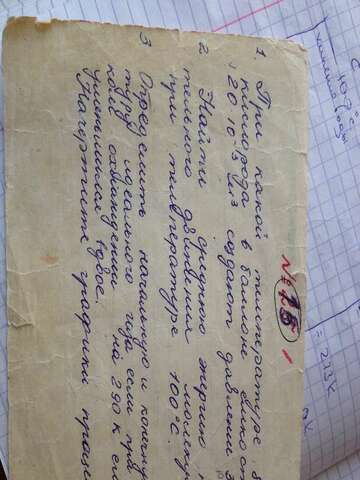 № 15.
1. При какой температуре 8
кислорода в баллоне ёмкост
20·10⁻³ м³ создаёт давление 3
2. Найти среднюю энергию п
тельного движения молеку
при температуре 100°С.
3 Определить начальную и конечну
туру идеального газа если при
охлаждении на 290 К ег
уменьшился вдвое.
Начертите графики проце
= 273К